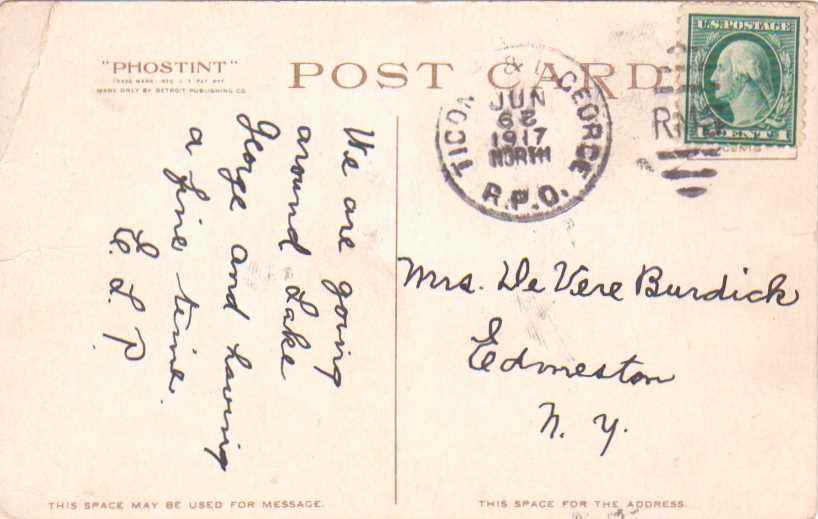 "PHOSTINT"
TRADE MARK REG. U.S. PAT. OFF.
MADE ONLY BY DETROIT PUBLISHING CO.
POST CARD
U.S. POSTAGE
CENTS
TICOA & L GEORGE
JUN
1917
NORTH
R.P.O.
We are going
around Lake
George and having
a fine time.
E. L. P.
Mrs. De Vere Burdick
Edmeston
N. Y.
THIS SPACE MAY BE USED FOR MESSAGE.
THIS SPACE FOR THE ADDRESS.